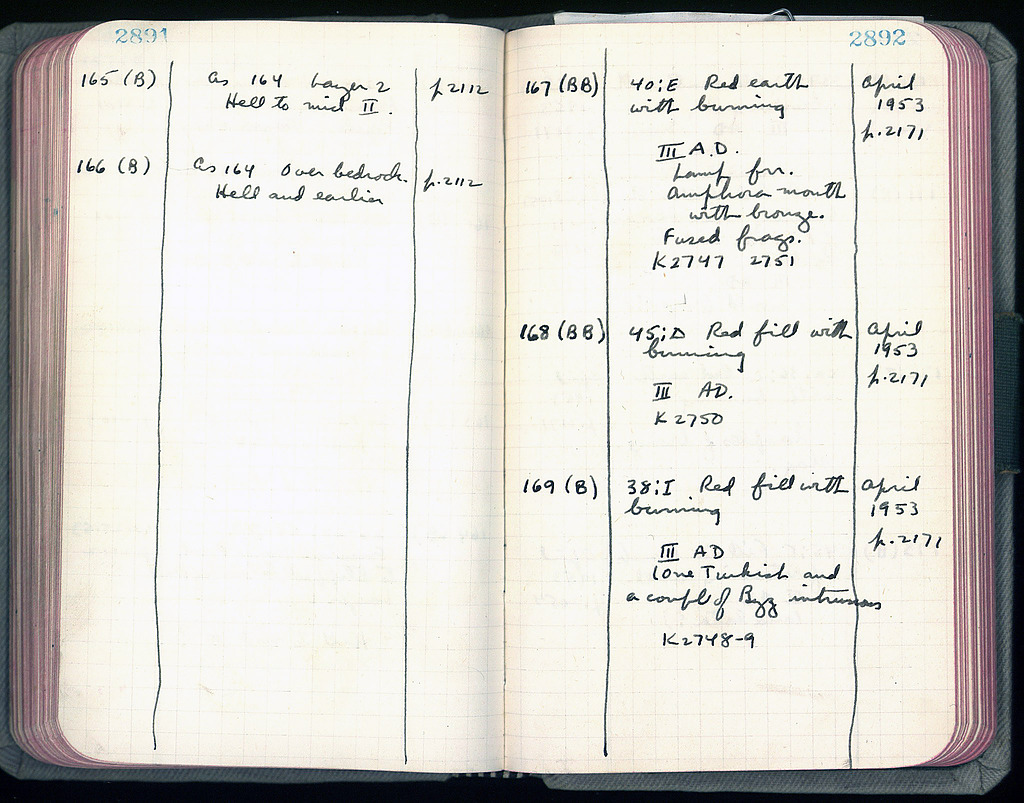 2891
165 (B) As 164 Layer 2 p.2112
Hell to mid II.
166 (B) As 164 Over bedrock. p.2112
Hell and earlier
2892
167 (BB) 40:E Red earth April
with burning 1953
p.2171
III A.D.
Lamp frr.
Amphora mouth
with bronze.
Fused frags.
K2747 2751
168 (BB) 45:D Red fill with April
burning 1953
p.2171
III AD.
K 2750
169 (B) 38:I Red fill with April
burning 1953
p.2171
III AD
(one Turkish and
a couple of Byz intrusions
K2748-9